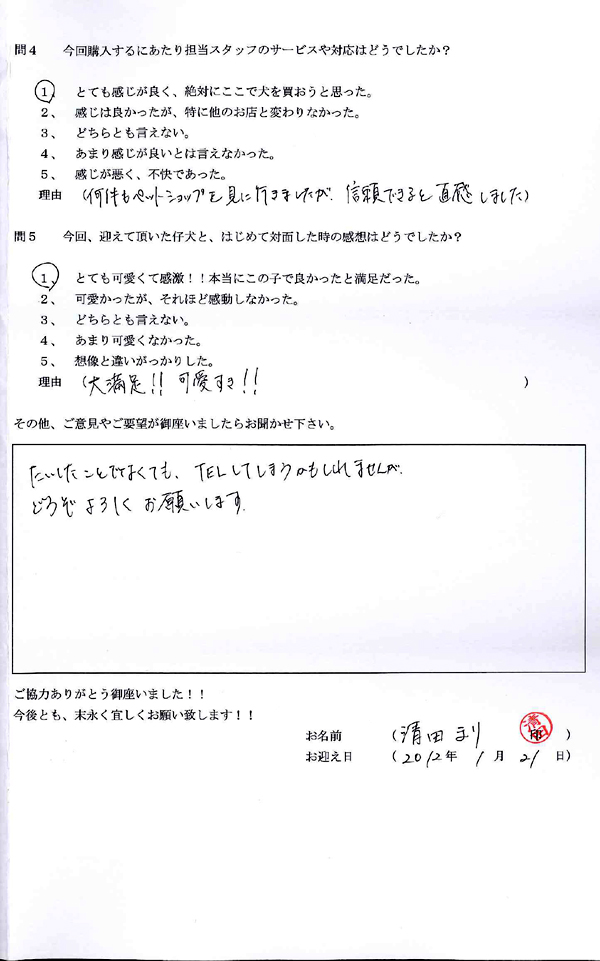 問４　今回購入するにあたり担当スタッフのサービスや対応はどうでしたか？
１、　とても感じが良く、絶対にここで犬を買おうと思った。
２、　感じは良かったが、特に他のお店と変わりなかった。
３、　どちらとも言えない。
４、　あまり感じが良いとは言えなかった。
５、　感じが悪く、不快であった。
理由　（何件もペットショップを見に行きましたが、信頼できると直感しました）
問５　今回、迎えて頂いた仔犬と、はじめて対面した時の感想はどうでしたか？
１、　とても可愛くて感激！！本当にこの子で良かったと満足だった。
２、　可愛かったが、それほど感動しなかった。
３、　どちらとも言えない。
４、　あまり可愛くなかった。
５、　想像と違いがっかりした。
理由　（大満足！！可愛すぎ！！　）
その他、ご意見やご要望が御座いましたらお聞かせ下さい。
たいしたことでなくても、TELしてしまうかもしれませんが、
どうぞよろしくお願いします。
ご協力ありがとう御座いました！！
今後とも、末永く宜しくお願い致します！！
お名前　（清田まり　清田　印）
お迎え日　（2012年　1月　21日）